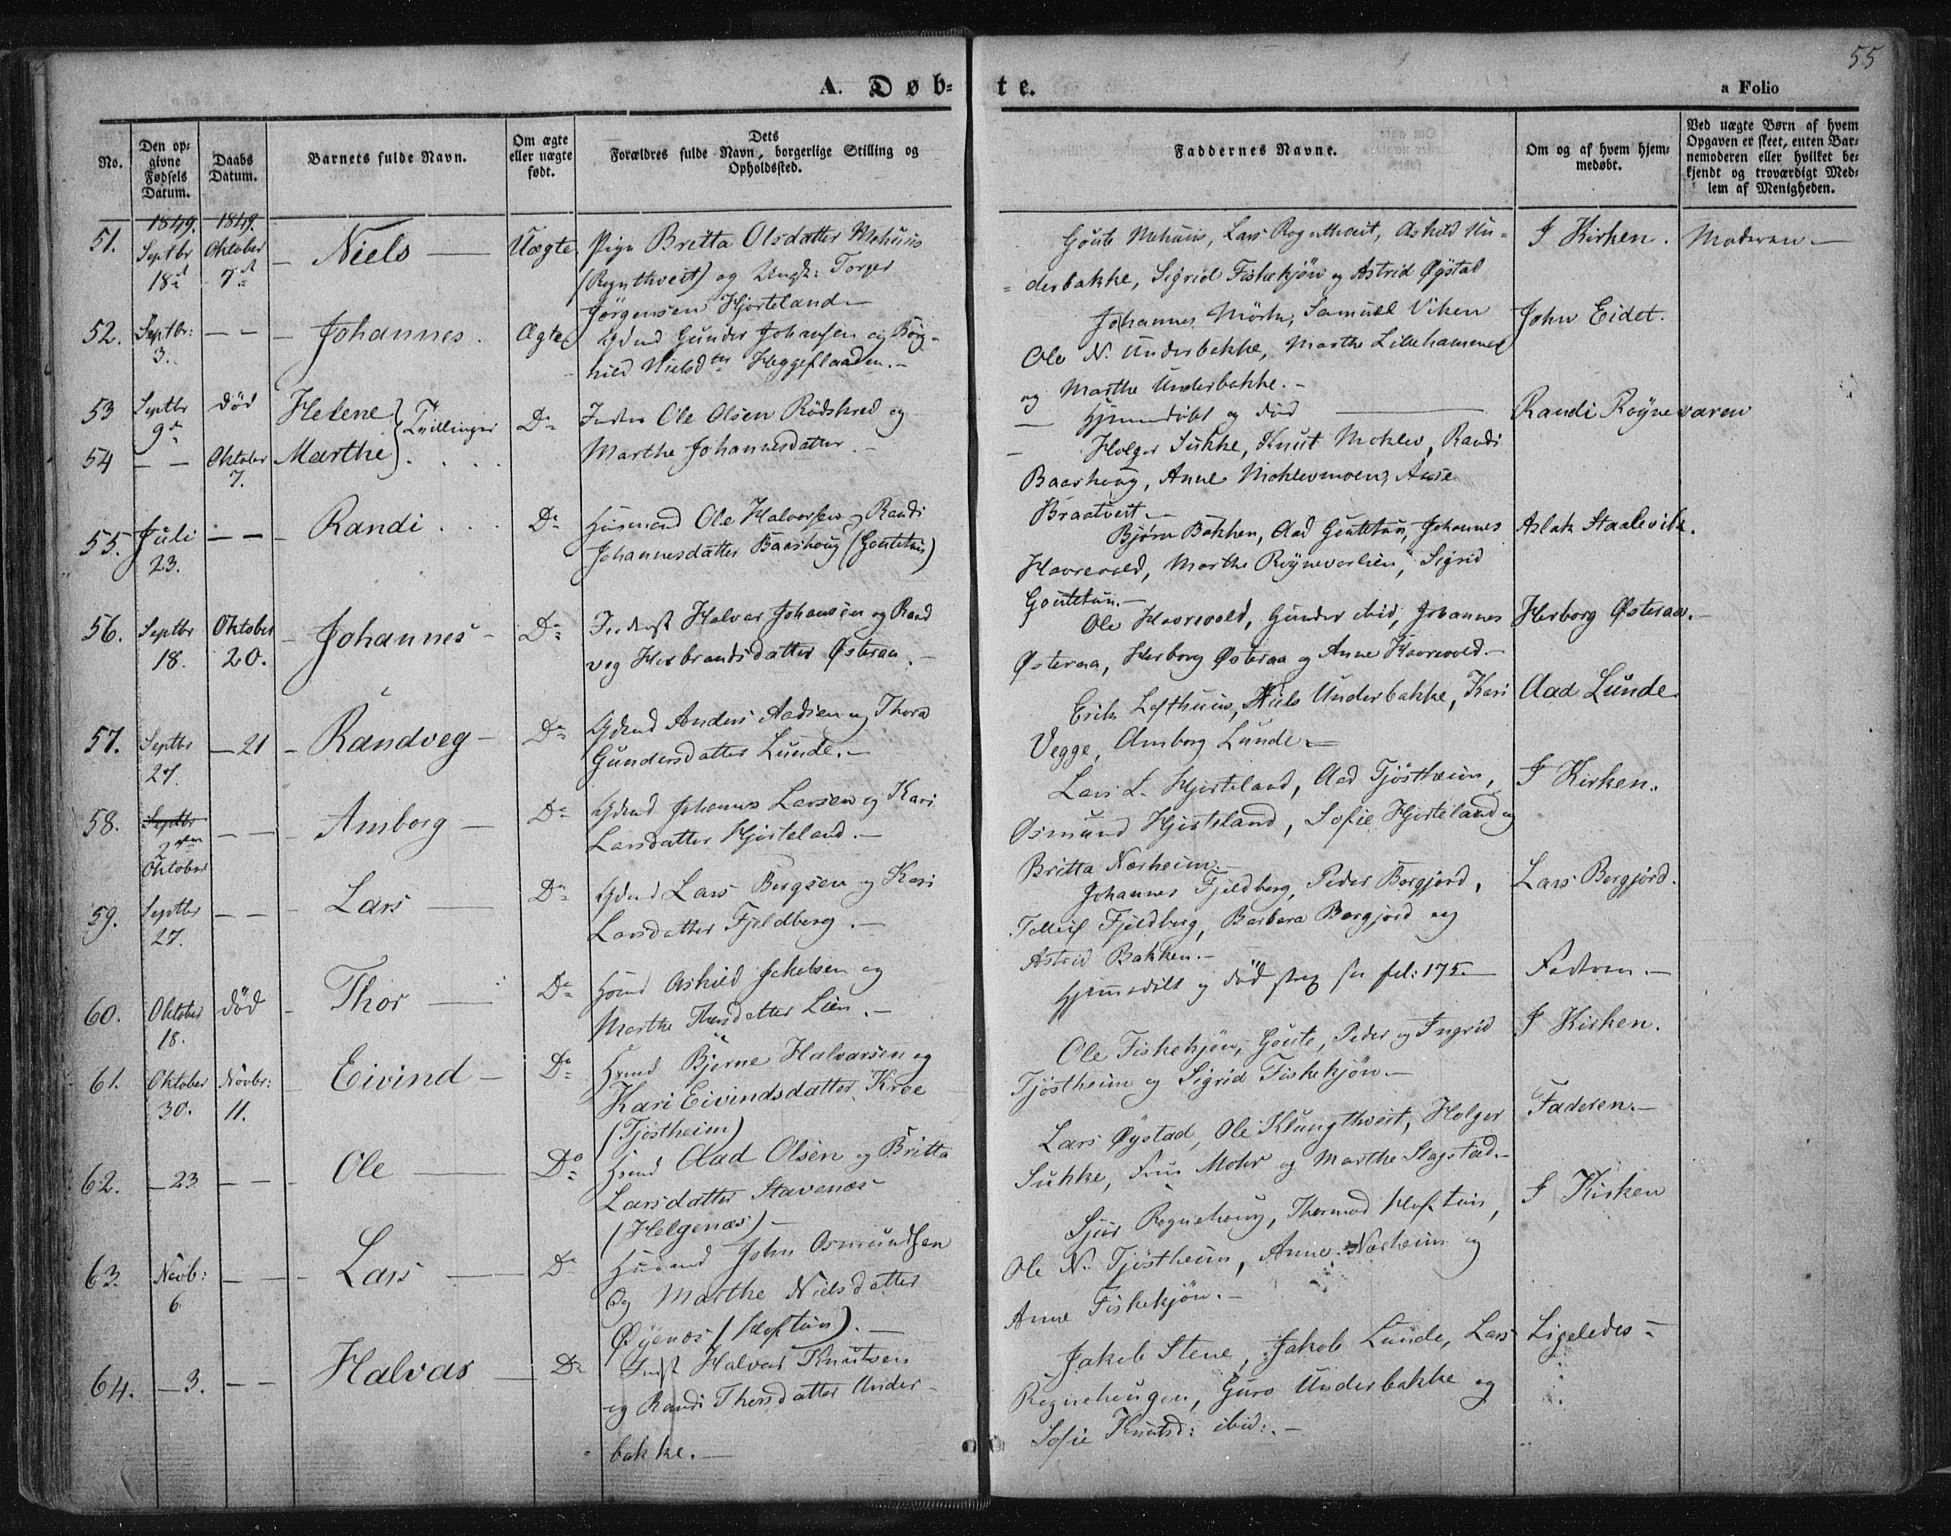 55
A. Døb-
te.
a Folio
No.
Den op-
givne
Fødsels
Datum.
Daabs
Datum.
Barnets fulde Navn.
Om ægte
eller uægte
født.
Dets
Forældres fulde Navn, borgerlige Stilling og
Opholdssted.
Faddernes Navne.
Om og af hvem hjem-
medøbt.
Ved uægte Børn af hvem
Opgaven er skeet, enten Bar-
nemoderen eller hvilket be-
kjendt og troværdigt Med-
lem af Menigheden.
1849. 1849.
51. Septbr 18d Oktober 7d Niels Uægte. Pige Britta Olsdatter Mehuus
(Røgnthveit) og Ungk: Torger
Jørgensen Hjorteland
Goute Mehuus, Lars Rognthveit, Askild Un-
derbakke, Sigrid Fiskekjøn og Astrid Øystad
I Kirken. Moderen
52. Septbr: 3. Johannes. Ægte Gdmd Gunder Johansen og Borg-
hild Nielsdtr Heggeflaaden.
Johannes Mørk, Samuel Viken
Ole N. Underbakke, Marthe Lillehammer
og Marthe Underbakke.
John Eidet.
53 Septbr 9d død Helene Tvillinger Do Inders Ole Olsen Rødskred og
Hjemmedøbt og død
Randi Røynevaren
54 Oktober 7. Marthe
Marthe Johannesdatter
Holger Sukke, Knut Moklev, Randi
Baashoug, Anne Moklevmoen, Anne
Braatveit.
55. Juli 23. Randi Do Husmand Ole Halvorsen og Randi
Johannesdatter Baashoug (Goutetun)
Bjørn Bakken, Aad Goutetun, Johannes
Havrevold, Marthe Røynevarlien, Sigrid
Goutetun.
Aslak Staalevik.
56. Septbr 18. Oktober 20. Johannes Do Inderst Halvar Johansen og Rand
veg Herbrandsdatter Østeraa.
Ole Havrevold, Gunder ibid, Johannes
Østeraa, Herborg Østeraa og Anne Havrevold.
Herborg Østeraa.
57. Septbr 27. 21 Randveg Do Gdmd Anders Aadsen og Thora
Gundersdatter Lunde.
Erik Lofthuus, Niels Underbakke, Kari
Vegge, Amborg Lunde.
Aad Lunde
58. Septbr Oktober Amborg Do Gdmd Johannes Larsen og Kari
Larsdatter Hjorteland.
Lars L. Hjorteland, Aad Tjøstheim,
Osmund Hjorteland, Sofie Hjorteland og
Britta Norheim.
I Kirken.
59. Septbr 27. Lars Do Gdmd Lars Borgsen og Kari
Larsdatter Fjeldberg.
Johannes Fjeldberg, Peder Borgjord,
Tollef Fjeldberg, Barbara Borgjord og
Astrid Bakken.
Lars Borgjord.
60. Oktober 18. død Thor Do Hsmd Askild Jakobsen og
Marthe Thorsdatter Lien.
Hjemmedøbt og død fol: 175.
Faderen.
61. Oktober 30. Novbr: 11. Eivind Do Hsmd Bjerne Halvarsen og
Kari Eivindsdatter Kroe
(Tjøstheim)
Ole Fiskekjøn, Goute, Peder og Ingrid
Tjøstheim og Sigrid Fiskekjøn.
I Kirken.
62. 23 Ole Do Hsmd Aad Olsen og Britta
Larsdatter Stavenæs
(Helgenæs)
Lars Øystad, Ole Klungthveit, Holger
Sukke, Mohr og Marthe Slagstad.
Faderen.
63. Novb: 6 Lars Do Husmd John Osmundsen
og Marthe Nielsdatter
Øyenæs (Hoftun).
Sjur Rognehoug, Thormod Hoftun,
Ole N. Tjøstheim, Anne Norheim og
Anne Fiskekjøn.
I Kirken
64. 3. Halvar Do Indst Halvar Knutsen
og Randi Thorsdatter Under-
bakke.
Jakob Stene, Jakob Lunde, Lars
Rognehougen, Guro Underbakke og
Sofie Knutsd: ibid:.
Ligeledes